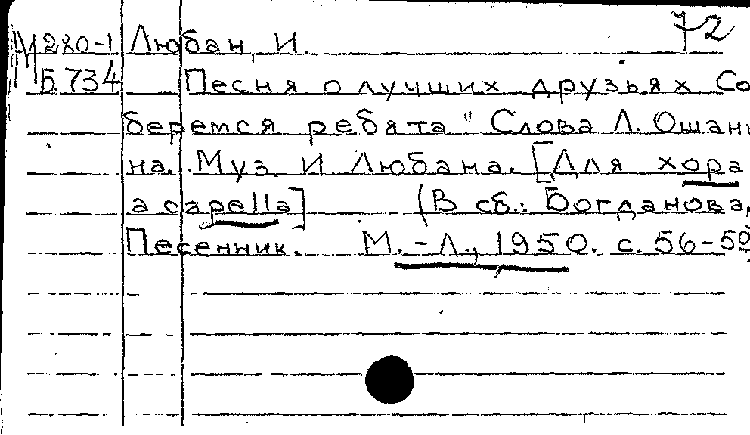 72
М280-1 Любан, И.
Б 734 Песня о лучших друзьях Со
беремся ребята" Слова Л. Ошани
на. Муз. И Любана. [Для хора
a capella] (В сб.: Богданова,
Песенник. М.-Л., 1950. с. 56-59